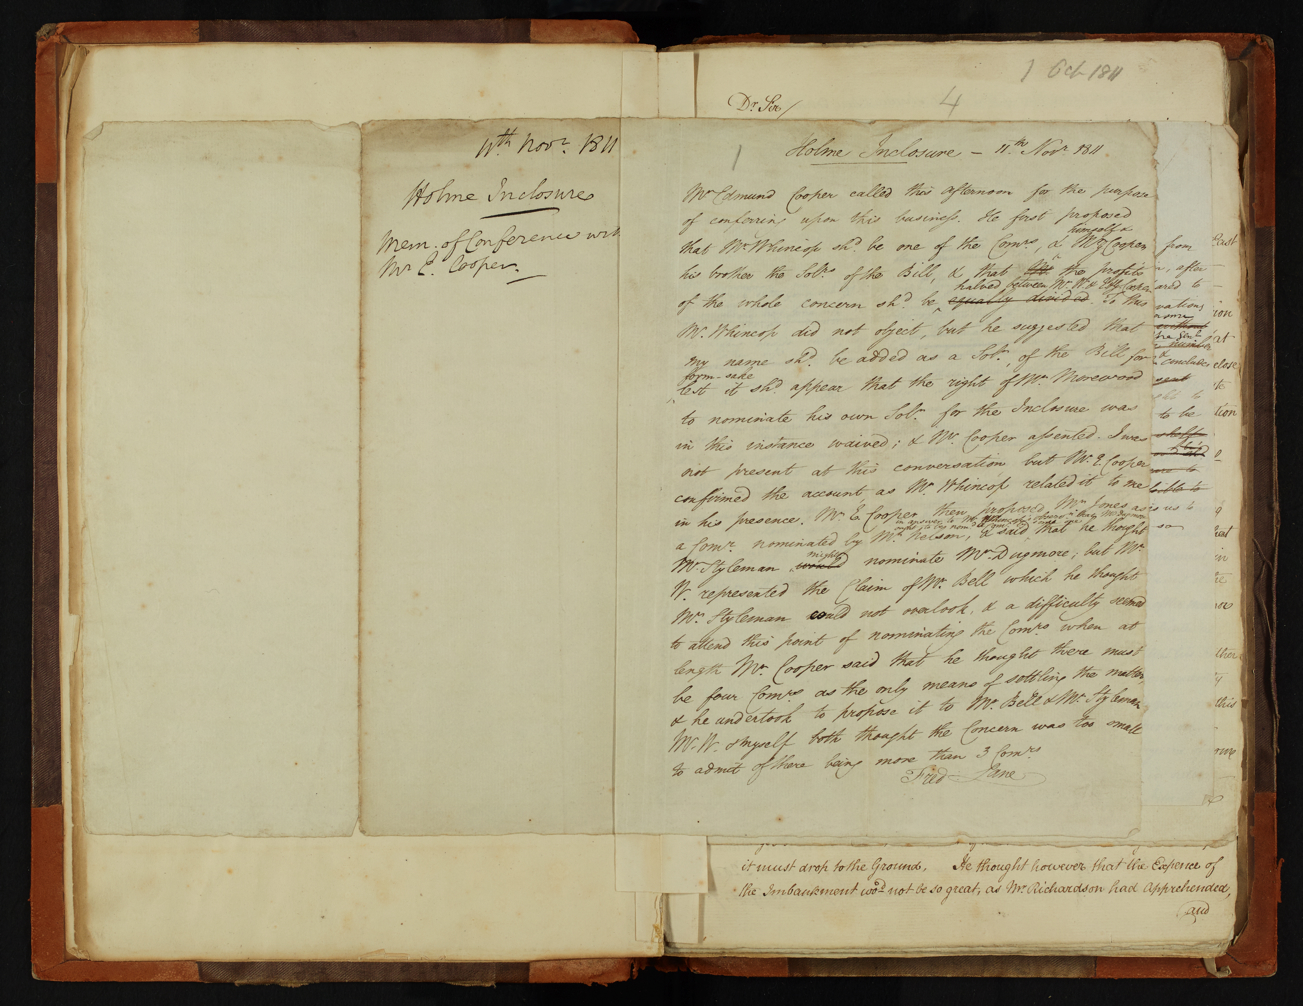 11th Novr. 1811
Holme Inclosure
Mem. of Conference with
Mr E. Cooper.
1 Oct 1811
4
Dr. Sir/
1
Holme Inclosure — 11th Novr 1811
Mr Edmund Cooper called this afternoon for the purpose
of conferring upon this business. He first proposed
himself &
that Mr Whincop shd. be one of the Comrs, & Mr Cooper
his brother the Solrs of the Bill, & that the profits
halved between Mr W. & Cooper
of the whole concern shd be equally divided. To this
Mr. Whincop did not object, but he suggested that
my name shd. be added as a Solr. of the Bill for
form-sake
lest it shd. appear that the right of Mr. Morewood
to nominate his own Solr. for the Inclosure was
in this instance waived; & Mr. Cooper assented. I was
not present at this conversation but Mr. E. Cooper
confirmed the account, as Mr. Whincop related it to me
in his presence. Mr E. Cooper then proposed Mr Jones as
in answer to Mr Whincop's
a Comr. nominated by Mr Nelson, & said that he thought
might
Mr Styleman would nominate Mr. Dugmore; but Mr.
W. represented the Claim of Mr. Bell which he thought
Mr. Styleman could not overlook, & a difficulty seemed
to attend this point of nominating the Comrs when at
length Mr. Cooper said that he thought there must
be four Comrs as the only means of settling the matter,
& he undertook to propose it to Mr. Bell & Mr. Styleman
Mr. W. & myself both thought the Concern was too small
to admit of there being more than 3 Comrs.
Fred Lane
from
after
to be
us to
so
East
close
this
it must drop to the Ground, He thought however that the Expence of
the Imbankment wod. not be so great, as Mr. Richardson had Apprehended,
and